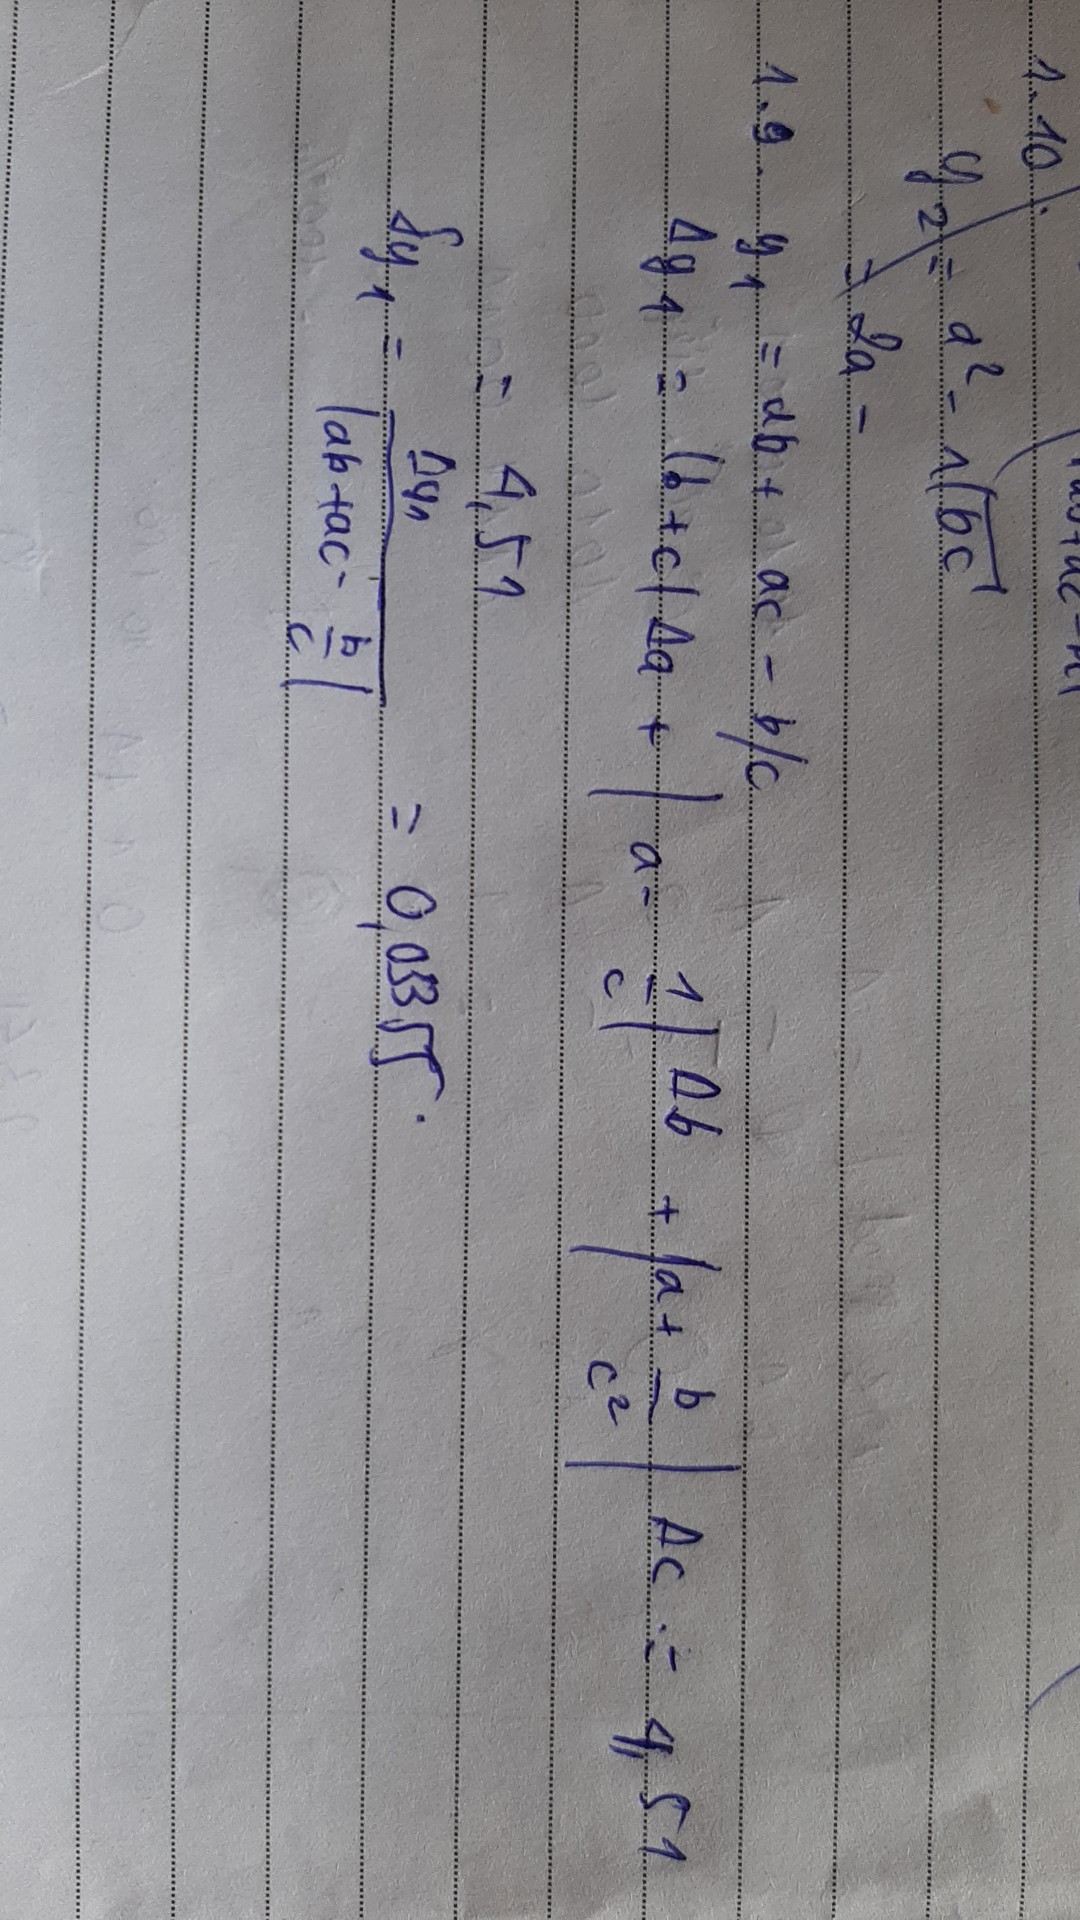 1.10.
y₂ = a² - √bc
= 2a -
1.9. y₁ = ab + ac - b/c
Δy₁ = |b + c| Δa + |a - 1/c| Δb + |a + b/c²| Δc = 4,51
= 4,51
δy₁ = Δy₁ / |ab + ac - b/c| = 0,03355.